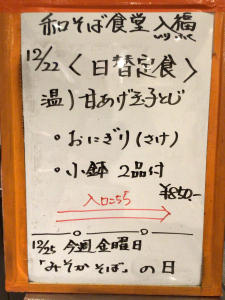 和そば食堂 入福
12/22 〈日替定食〉
温)甘あげ玉子とじ
・おにぎり(さけ)
・小鉢 2品付
¥850-
入口こちら
12/25 今週金曜日
「みそかそば」の日